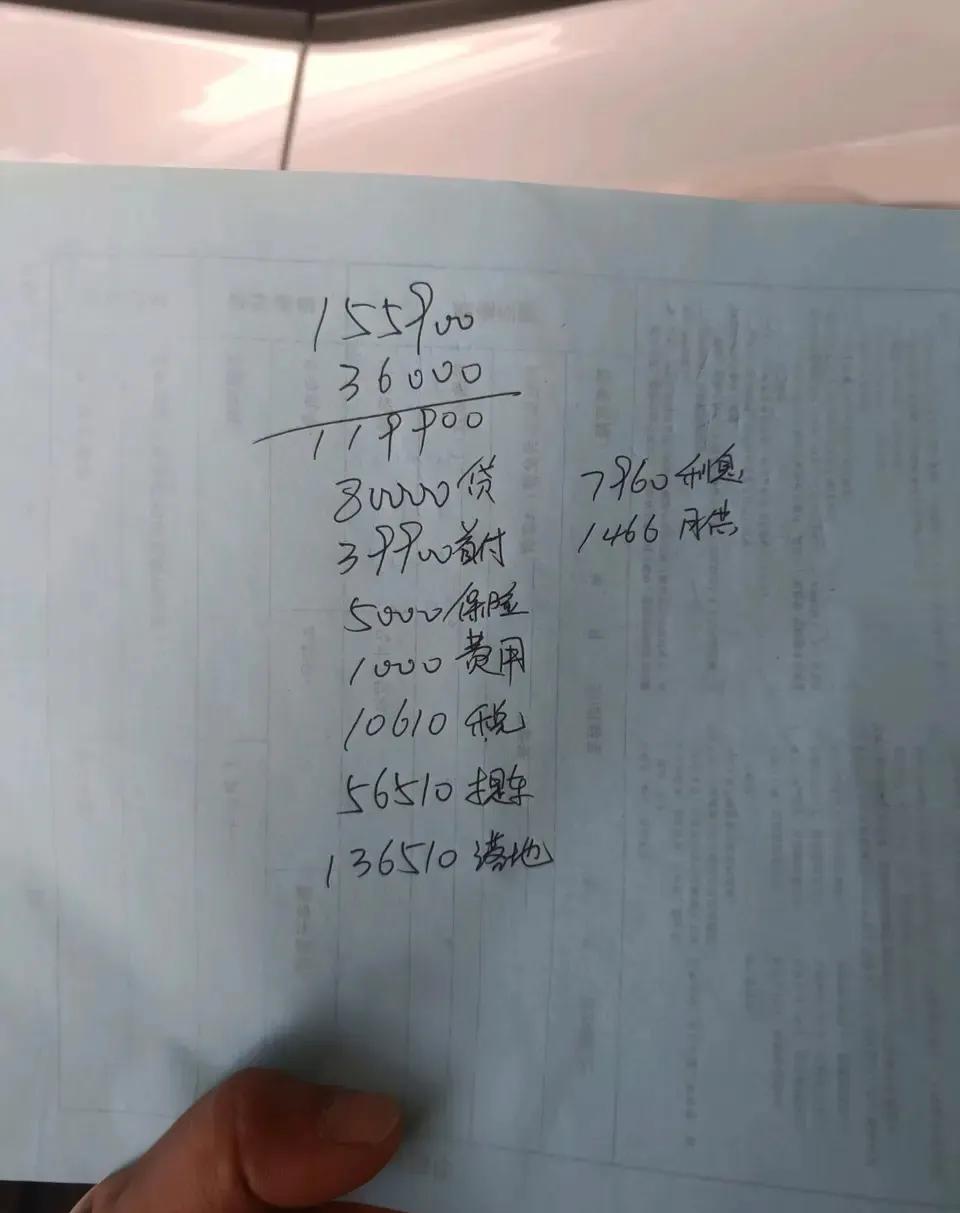 155900
36000
119900
80000贷 7960利息
39900首付 1466月供
5000保险
1000费用
10610税
56510提车
136510落地